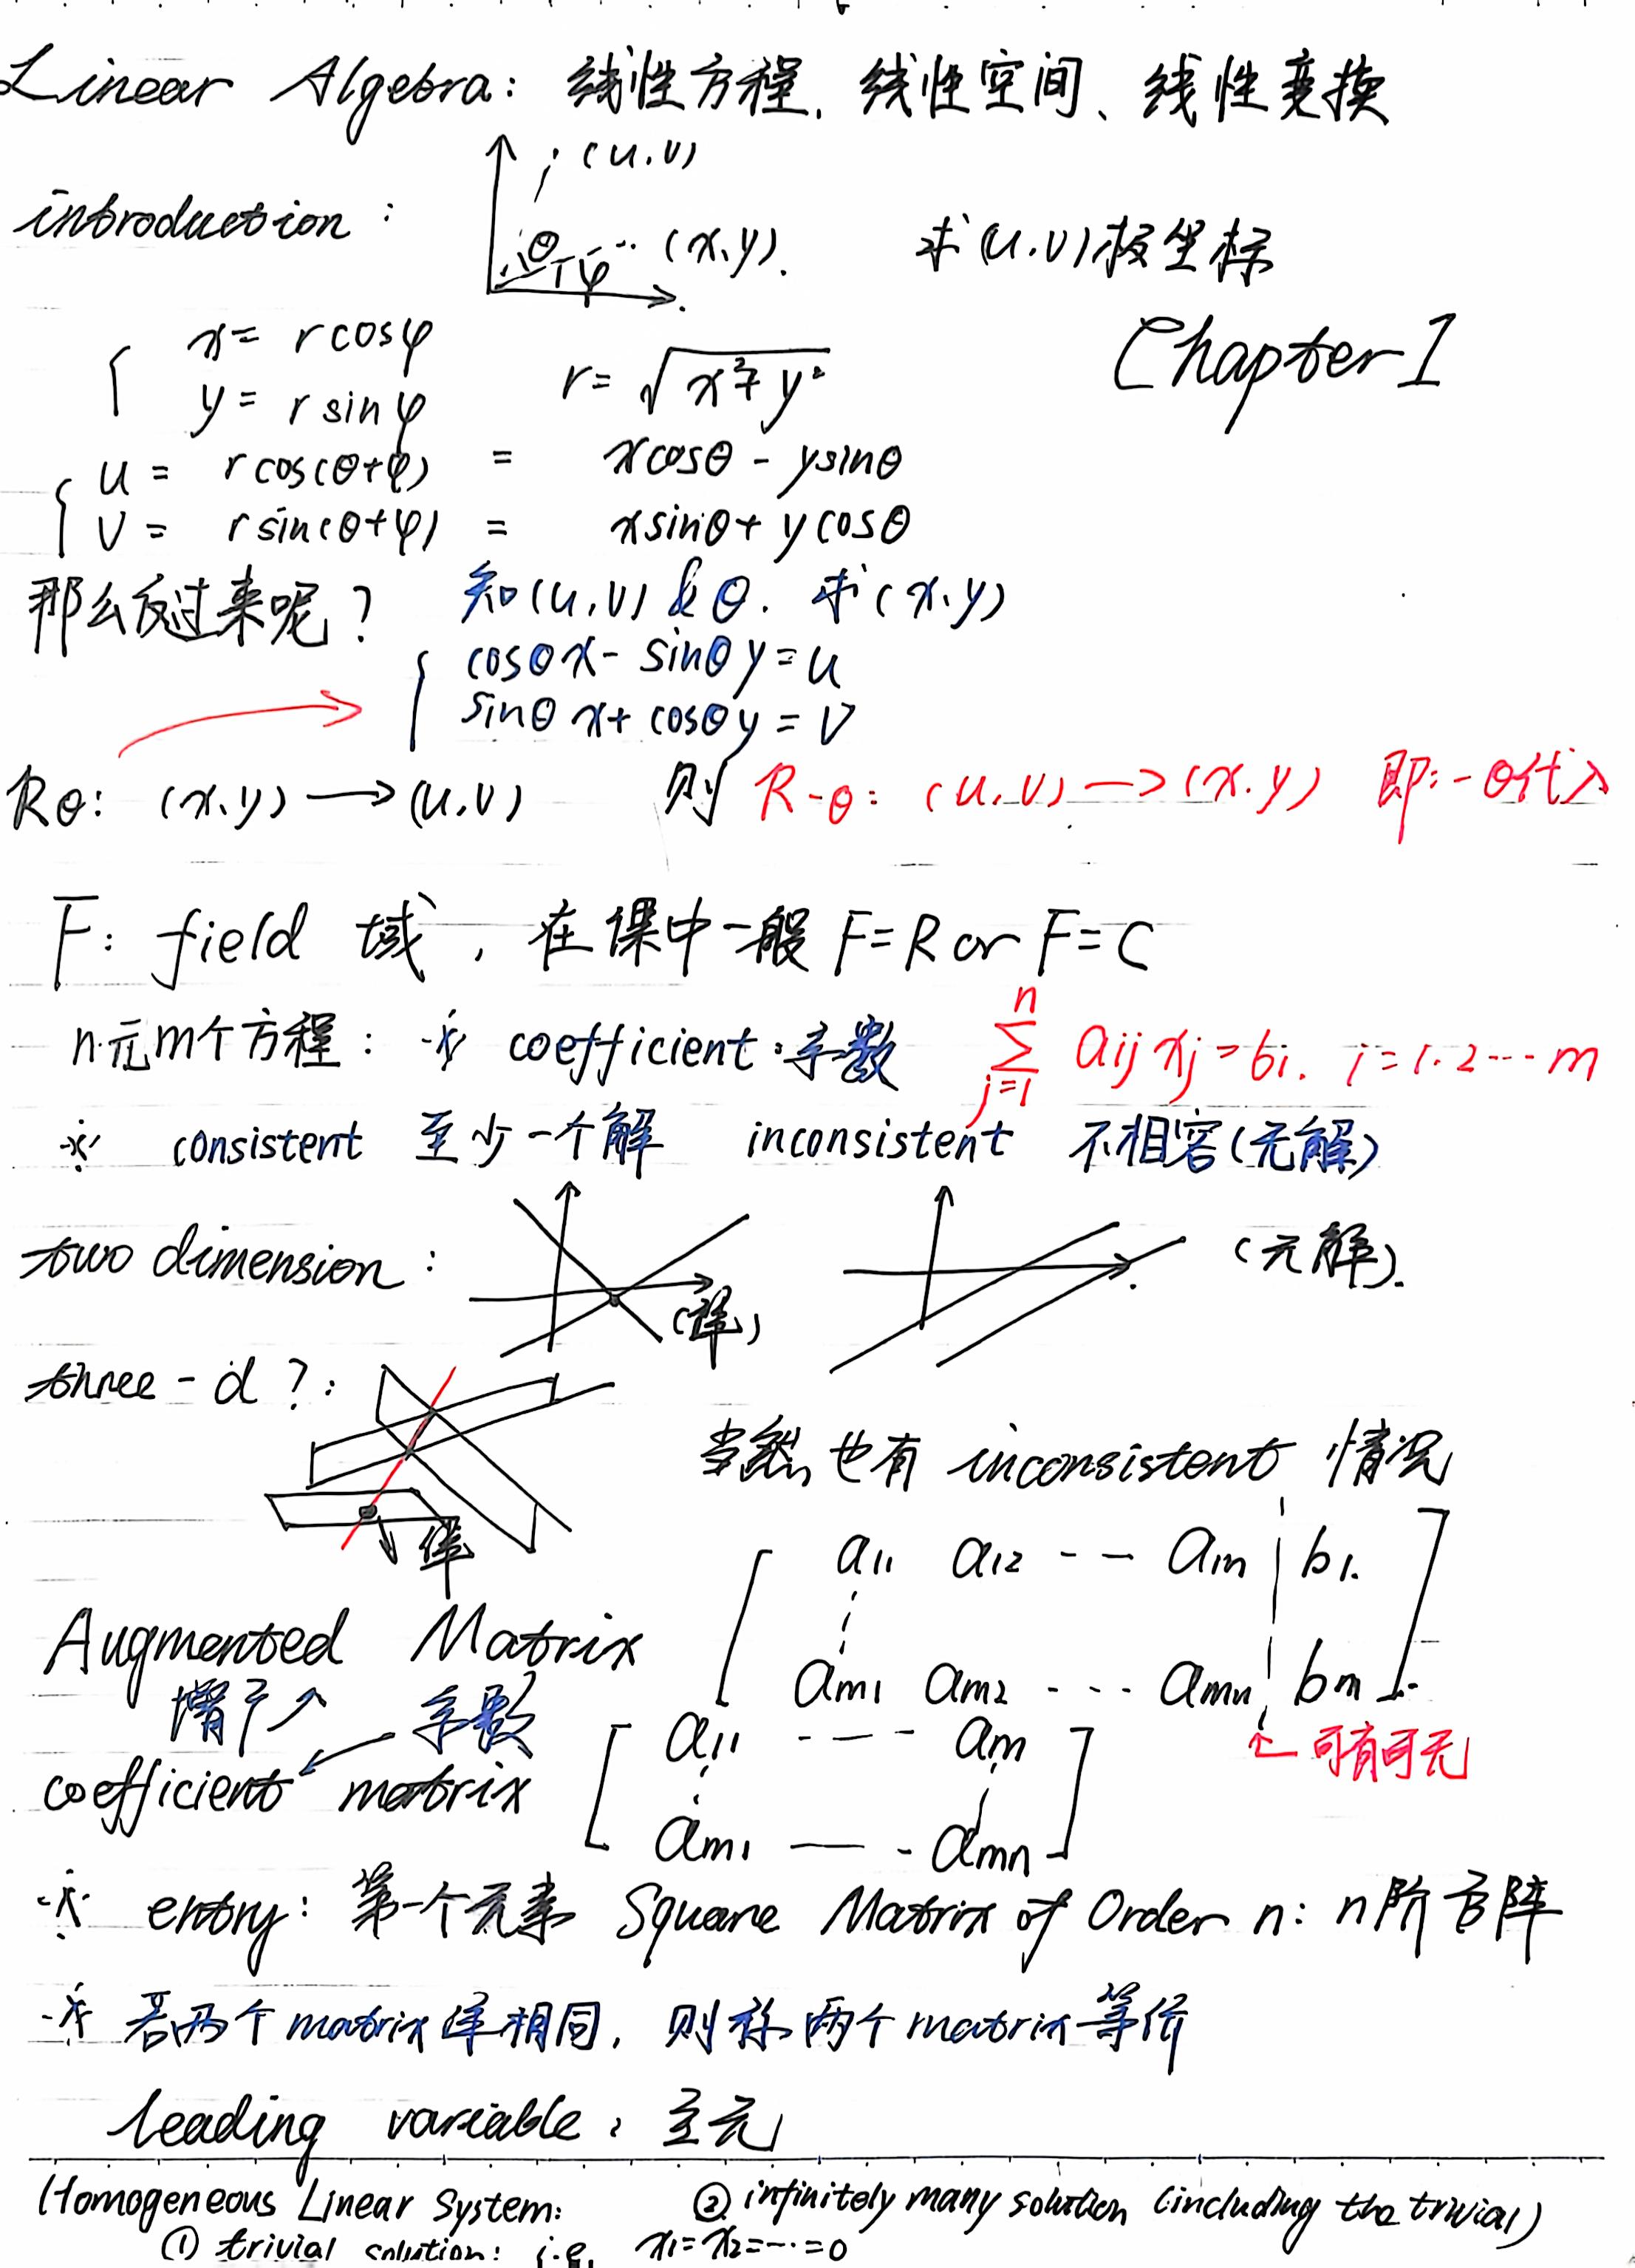 Linear Algebra: 线性方程、线性空间、线性变换
(u.v)
introduction: θ φ (x,y). 求(u.v)极坐标
Chapter I
x = rcosφ
y = rsinφ r = √x²+y²
u = rcos(θ+φ) = xcosθ - ysinθ
v = rsin(θ+φ) = xsinθ + ycosθ
那么反过来呢? 知(u,v) & θ. 求(x,y)
cosθx - sinθy = u
sinθx + cosθy = v
Rθ: (x,y) → (u,v) 则 R-θ: (u,v) → (x.y) 即:-θ代入
F: field 域, 在课中一般 F=R or F=C
n元m个方程: ※ coefficient:系数 n∑j=1 aij xj = bi. i=1.2···m
※ consistent 至少一个解 inconsistent 不相容(无解)
two dimension: (解) (无解).
three-d ?:
当然也有 inconsistent 情况
解
Augmented Matrix [ a11 a12 --- a1n | b1.
am1 am2 ---- amn | bm ]
增广 系数 ← 可有可无
coefficient matrix [ a11 ---- a1n
am1 --- amn ]
※ entry: 第一个元素 Square Matrix of Order n: n阶方阵
※ 若两个matrix 解相同, 则称两个matrix等价
leading variable: 主元
Homogeneous Linear System: ② infinitely many solution (including the trivial)
① trivial solution: i.e. x1=x2=···=0